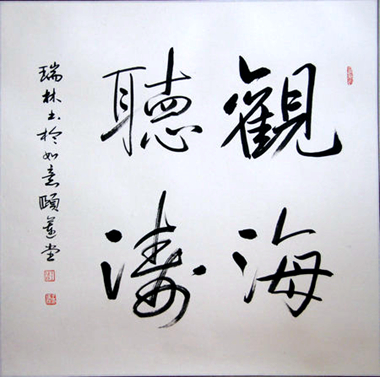 觀海
聽濤
瑞林书於如意頤蓮堂